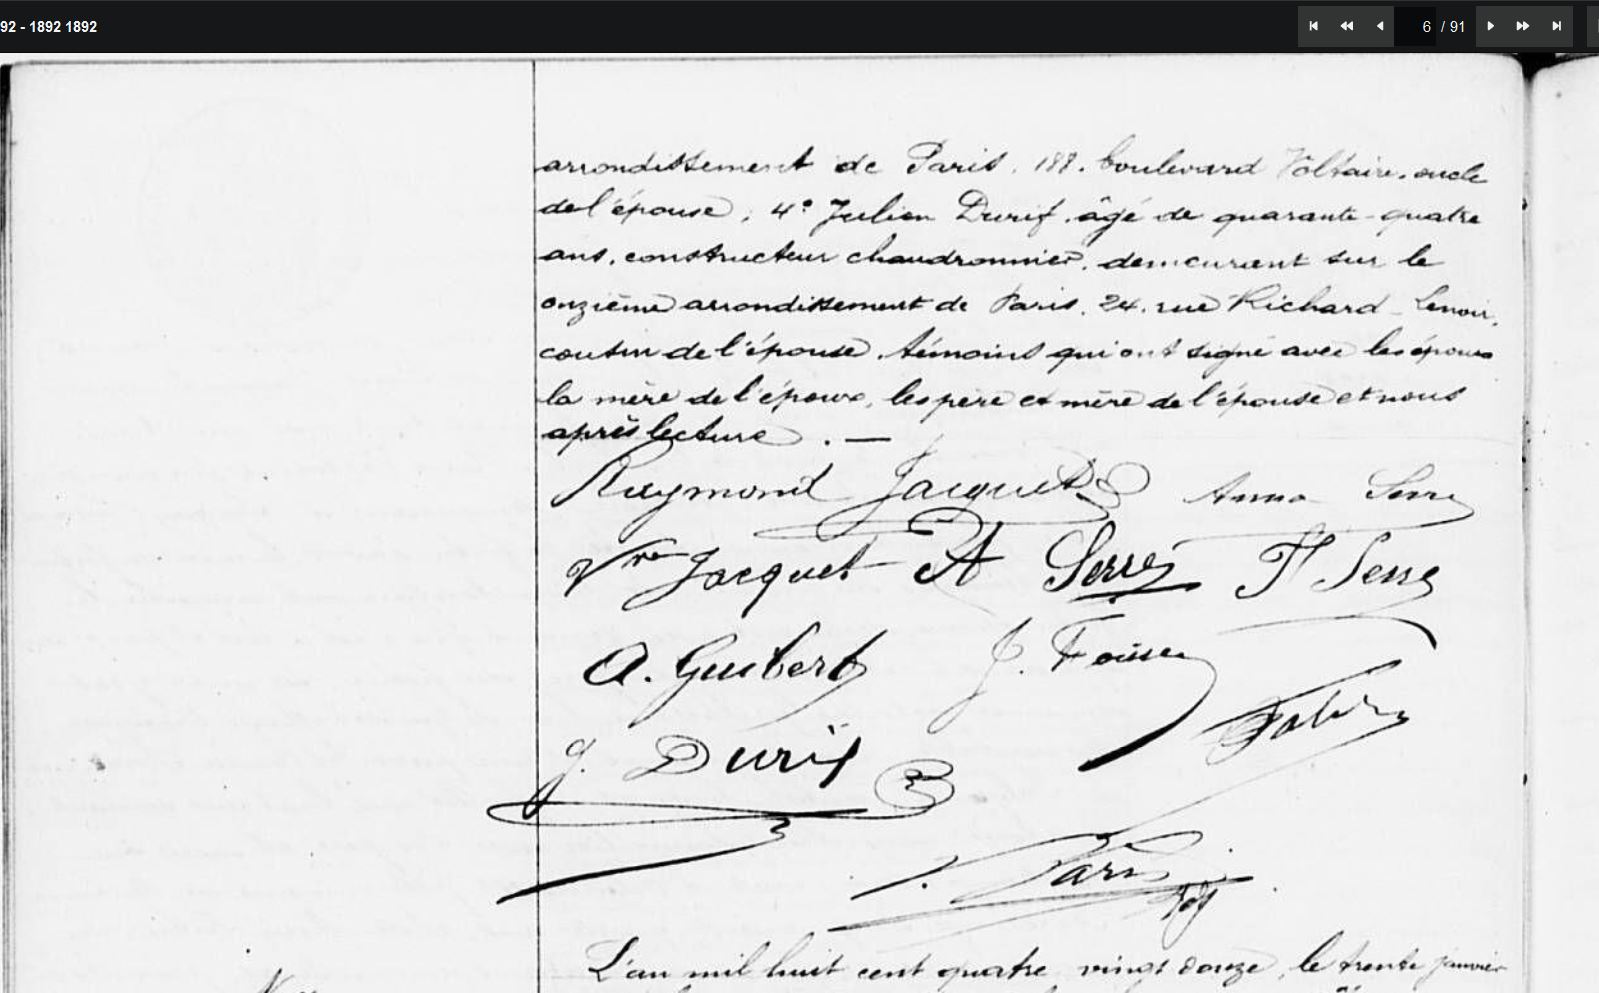 92 - 1892 1892
6 / 91
arrondissement de Paris. 188. boulevard Voltaire. oncle
de l'épouse ; 4° Julien Durif. âgé de quarante-quatre
ans. constructeur chaudronnier. demeurant sur le
onzième arrondissement de Paris. 24. rue Richard-Lenoir.
cousin de l'épouse. témoins qui ont signé avec les époux
la mère de l'époux, les père et mère de l'épouse et nous
après lecture. —
Raymond Jacquet Anna Serre
Vve Jacquet A Serre H Serre
A. Guibert J.
J. Durif
L'an mil huit cent quatre vingt douze, le trente janvier